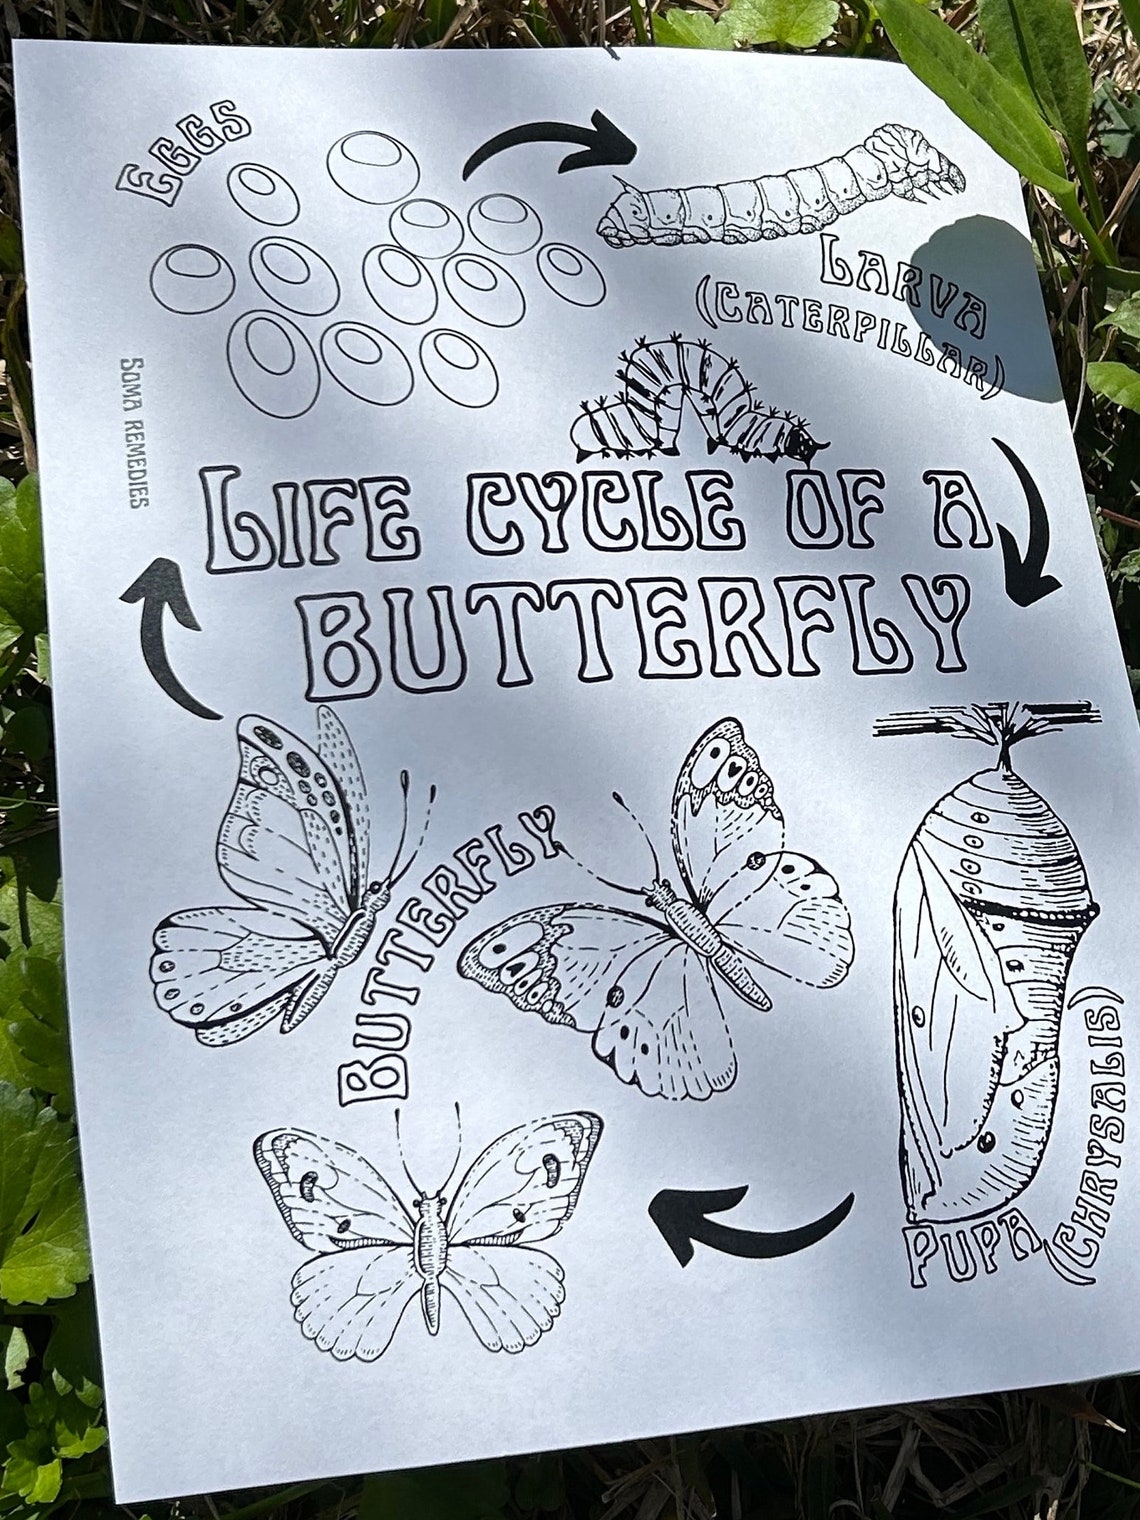 Eggs
Larva
(Caterpillar)
Soma remedies
Life cycle of a
Butterfly
Butterfly
Pupa
(Chrysalis)